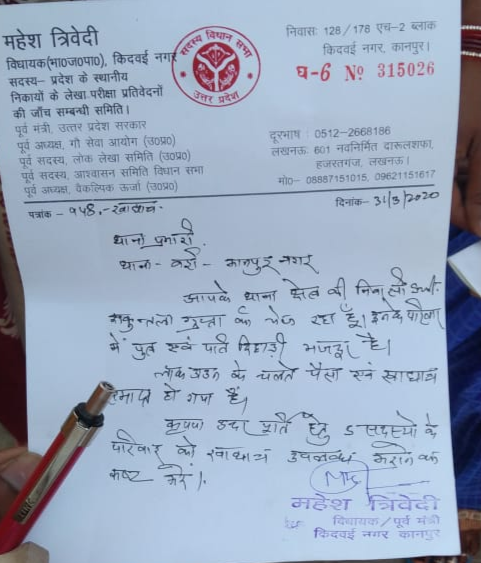 महेश त्रिवेदी
विधायक(भा०ज०पा०), किदवई नगर
सदस्य– प्रदेश के स्थानीय
निकायों के लेखा परीक्षा प्रतिवेदनों
की जाँच सम्बन्धी समिति।
पूर्व मंत्री, उत्तर प्रदेश सरकार
पूर्व अध्यक्ष, गौ सेवा आयोग (उ०प्र०)
पूर्व सदस्य, लोक लेखा समिति (उ०प्र०)
पूर्व सदस्य, आश्वासन समिति विधान सभा
पूर्व अध्यक्ष, वैकल्पिक ऊर्जा (उ०प्र०)
सदस्य विधान सभा
उत्तर प्रदेश
निवास: 128 / 178 एच–2 ब्लाक
किदवई नगर, कानपुर।
घ-6 № 315026
दूरभाष : 0512–2668186
लखनऊ: 601 नवनिर्मित दारूलशफा,
हजरतगंज, लखनऊ।
मो०– 08887151015, 09621151617
पत्रांक – ९५8.-
दिनांक– 31/3/2020
थाना प्रभारी
थाना – बर्रा – कानपुर नगर
आपके थाना क्षेत्र की निवासी Smt.
शकुन्तला गुप्ता के रहा हूँ। इनके परिवार
में पुत्र एवं पति दिहाड़ी मजदूर है।
लाक डाउन के चलते पैसा एवं खाद्यान्न
समाप्त हो गया है।
कृपया पूर्ति हेतु 5 सदस्यों के
परिवार को खाद्यान्न उपलब्ध कराने का
कष्ट करें।
महेश त्रिवेदी
विधायक/पूर्व मंत्री
किदवई नगर कानपुर